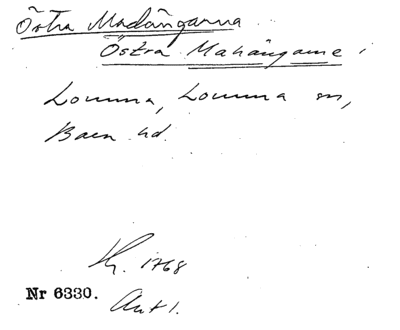 Östra Madängarna
Östra Mahängarne i
Lomma, Lomma sn,
Bara hd.
Kr. 1768
Nr 6330.
Ant 1.